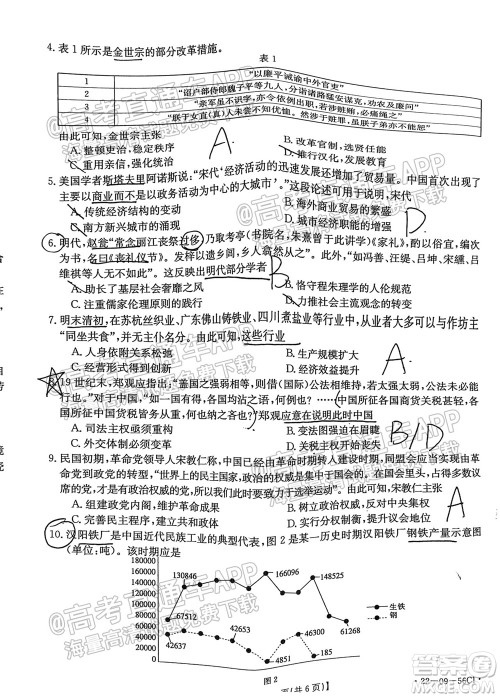 4. 表1所示是金世宗的部分改革措施。
表1
1 “以廉平诫谕中外官吏”
2 “诏户部侍郎魏子平等九人，分诣诸路猛安谋克，劝农及廉问”
3 “亲军虽不识字，亦令依例出职，若涉赃贿，必痛绳之”
4 “朕于女直(真)人未尝不知优恤。然涉于赃罪，虽朕子弟亦不能恕”
由此可知，金世宗主张
A. 整顿吏治，稳定秩序
B. 改革官制，选贤任能
C. 重用亲信，加强统治
D. 移风易俗，发展经济
A
5. 美国学者斯塔夫里阿诺斯说：“宋代‘经济活动的迅速发展增大了贸易量。中国首次出现了
主要以商业而不是以政务活动为中心的大城市’。”这段论述可用于说明，宋代
A. 传统坊市的变迁
B. 海外商业贸易的繁盛
C. 南方新兴城市的涌现
D. 城市经济功能的增强
D
6. 明代，赵耸“常念丽江丧祭过侈，乃取考亭(书院名，朱熹曾于此讲学)《家礼》，酌以俗宜，编
次为书，名曰《丧礼仪节》。发梓以遗乡闾，乡人化焉”。其他的“如冯善、汪禔、吕坤、宋纁、吕
维祺等人无不如此”。这反映出明代部分学者
A. 助长了基层社会奢靡之风
B. 恪守程朱理学的人伦规范
C. 注重儒家伦理原则的践行
D. 力推社会主流观念的转变
B
7. 明末清初，在苏杭丝织业、广东佛山铸铁业、四川煮盐业等行业中，从业者大多可以与作坊主
“同坐共食”，并无生分之别。由此可知，这些行业
A. 人身依附关系松弛
B. 生产规模扩大
C. 内部等级差异缩小
D. 经济效益提升
A
8. 19世纪末，郑观应指出：“盖国之强弱相等，则借(国际)公法相维持，若太强太弱，公法未必能
行也。”对于中国，“如一国有利，各国均沾之语，何例也？……中国所征各国商货关税甚少，各
国所征中国货税皆务从重，何例也？”据此可知，郑观应意在说明此时中国
A. 宗法观念根深蒂固
B. 变法图强迫在眉睫
C. 近代外交举步维艰
D. 关税自主权利丧失
B/D
9. 民国初期，革命党领导人宋教仁指出，中国已经由革命时期转入建设时期，同盟会应实现由革
命党向执政党的转型，“世界上的民主国家，政治的权威是集中于国会的。在国会里头，占得
大多数议席的党，才是有政治权威的党，所以我们此时要致力于选举运动”。宋教仁旨在
A. 组建政党内阁，维护民主政治
B. 反对军阀专权，保障民众权利
C. 完善革命主张，争取社会支持
D. 实现政治转型，发展资本主义
A
10. 汉阳铁厂是中国近代民族工业的典型代表，图2是某一历史时期汉阳铁厂钢铁产量示意图
(单位：吨)。该时期应是
180000
160000
140000
120000
100000
80000
60000
40000
20000
0
130846
166096
148525
67512
61268
42637
42653
4851
185
生铁
钢
图2
页(共6页)】
·22-09-56C1·
@高考直通车APP
海量高清试题免费下载
答案圈